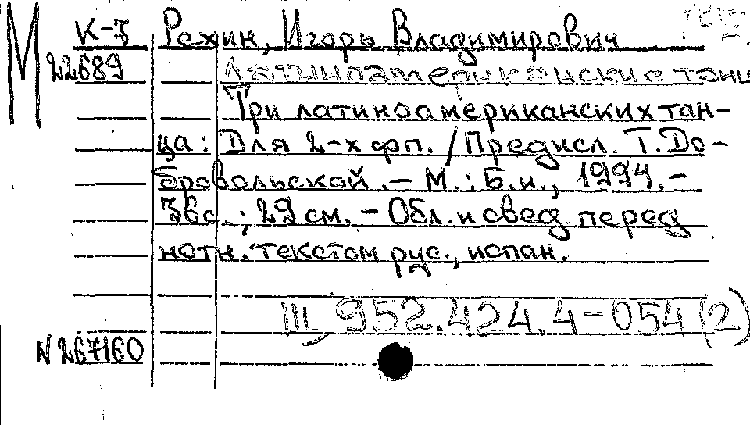 М К-7 Рехин, Игорь Владимирович
22689 Латиноамериканские танц
Три латиноамериканских тан-
ца: Для 2-х фп. / Предисл. Т. До-
бровольской. – М.: Б.и., 1994. –
; 29 см. – Обл. и свед. перед
нотн. текстом рус., испан.
III, 952.424.4-054 (2)
N 267160